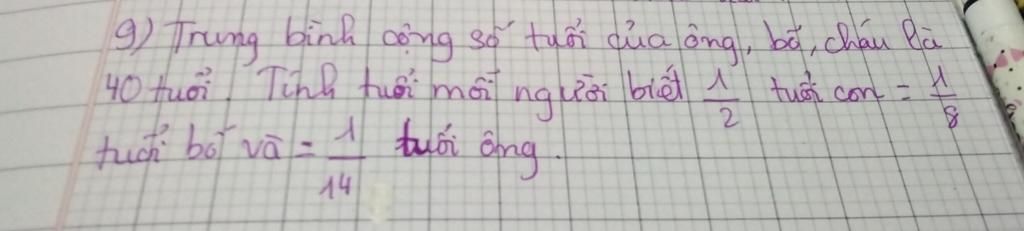 9) Trung bình cộng số tuổi của ông, bố, cháu là
40 tuổi. Tính tuổi mỗi người biết 1/2 tuổi con = 1/8
tuổi bố và = 1/14 tuổi ông.